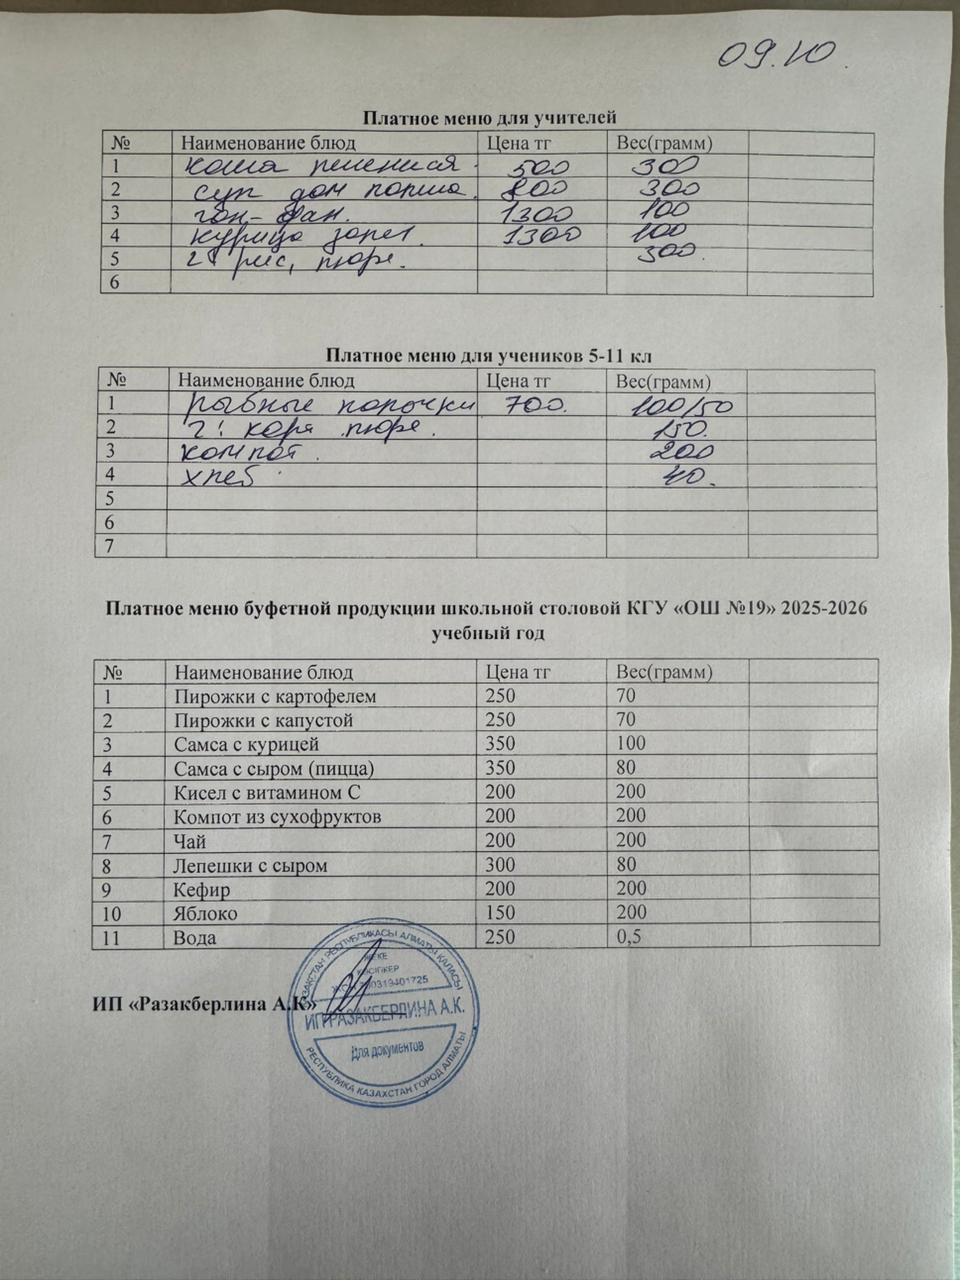 09.10.
Платное меню для учителей
№ Наименование блюд Цена тг Вес(грамм)
1 каша 500 300
2 суп дом лапша. 800 300
3 1300 100
4 курица запеч. 1300 100
5 рис, пюре. 300.
6
Платное меню для учеников 5-11 кл
№ Наименование блюд Цена тг Вес(грамм)
1 рыбные палочки 700. 100/50
2 г: карт пюре. 150.
3 компот. 200
4 хлеб 40.
5
6
7
Платное меню буфетной продукции школьной столовой КГУ «ОШ №19» 2025-2026
учебный год
№ Наименование блюд Цена тг Вес(грамм)
1 Пирожки с картофелем 250 70
2 Пирожки с капустой 250 70
3 Самса с курицей 350 100
4 Самса с сыром (пицца) 350 80
5 Кисел с витамином С 200 200
6 Компот из сухофруктов 200 200
7 Чай 200 200
8 Лепешки с сыром 300 80
9 Кефир 200 200
10 Яблоко 150 200
11 Вода 250 0,5
ҚАЗАҚСТАН РЕСПУБЛИКАСЫ АЛМАТЫ ҚАЛАСЫ
ЖЕКЕ
КӘСІПКЕР
ИП «Разакберлина А.К»
ИП РАЗАКБЕРЛИНА А.К.
Для документов
РЕСПУБЛИКА КАЗАХСТАН ГОРОД АЛМАТЫ